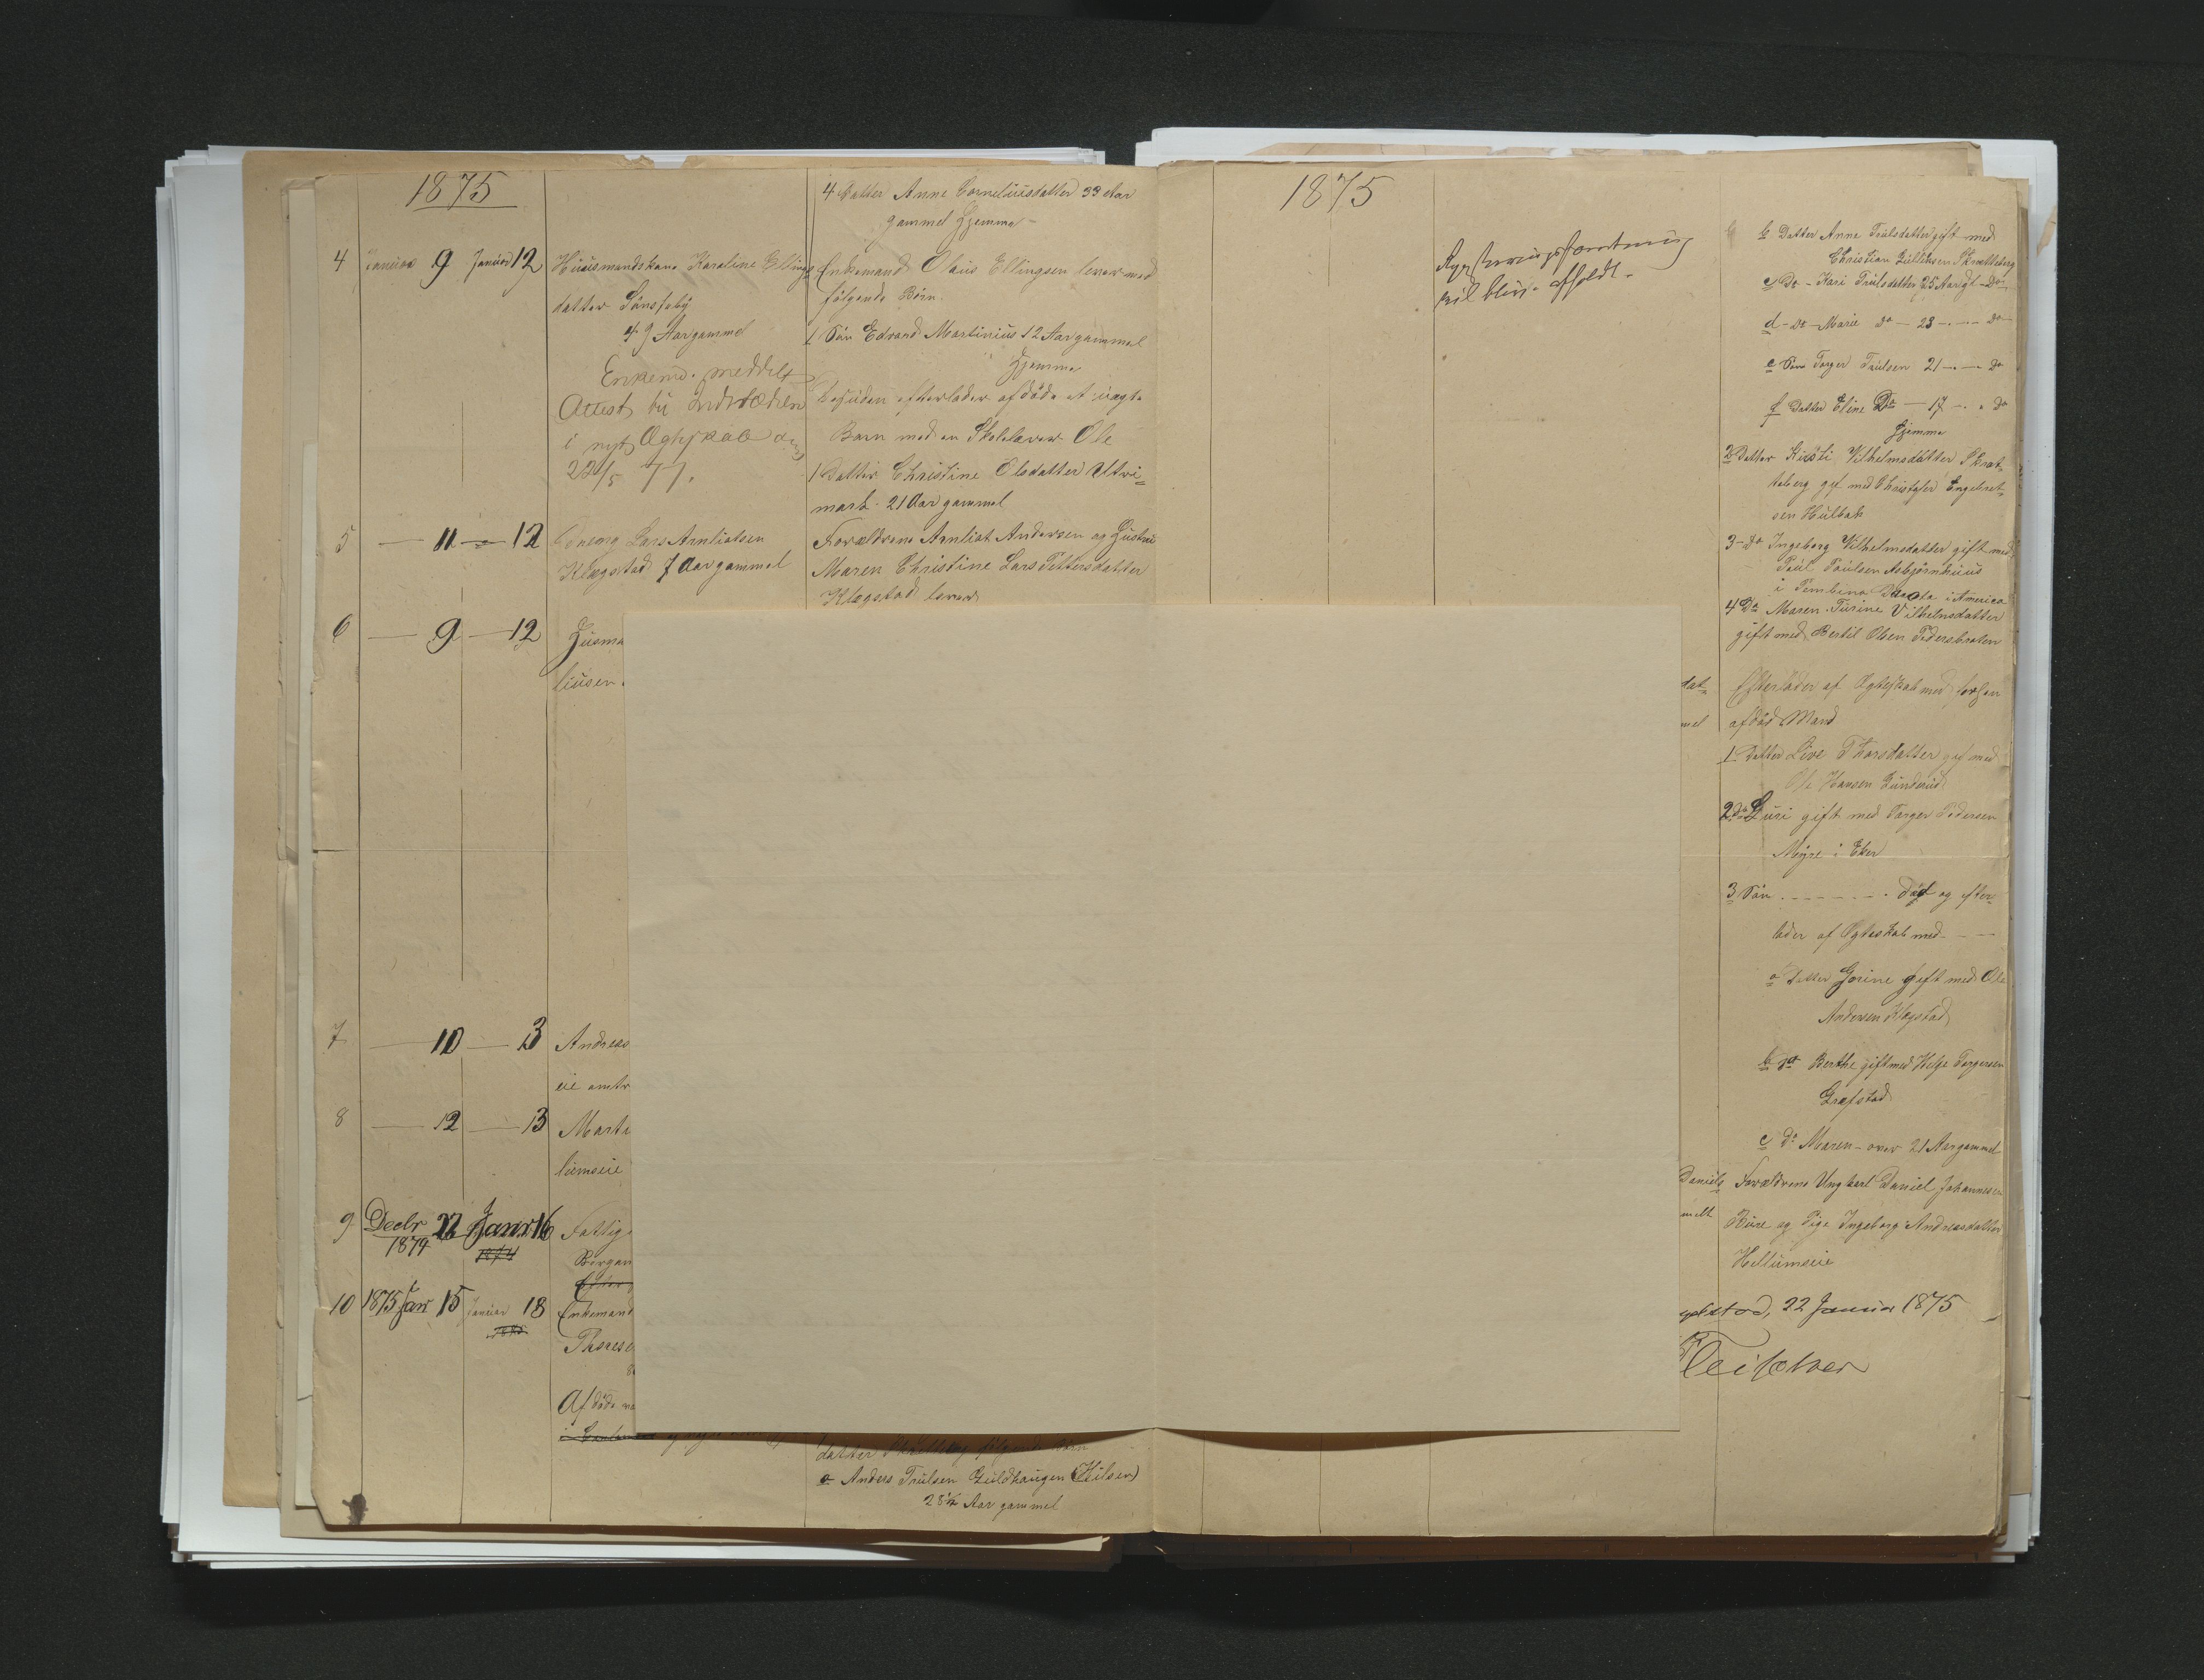 1875
4 Datter Anne Corneliusdatter 33 Aar
gammel Hjemme
4 Januar 9 Januar 12 Huusmandskone Karoline Ellings
datter Sønsteby
49 Aar gammel
Enkemd. meddelt
Attest til Indtræden
i nyt Ægteskab
22/5 77.
Enkemand Olaus Ellingsen lever med
følgende Børn.
1 Søn Edvard Martinius 12 Aar gammel
Hjemme
Desuden efterlader afdøde et uægte
Barn med en Skolelærer Ole
1 Datter Christine Olsdatter
mark 21 Aar gammel
5 — 11 — 12 Lars Arnliotsen
Klægstad 7 Aar gammel
Forældrene Arnliot Andersen og Hustru
Maren Christine Lars Pettersdatter
Klægstad lever
6 — 9 — 12 Husma
liusen
7 — 10 — 13 Andreas
eie omtr
8 — 12 — 13 Marti
lumseie
9 Decbr 22 Janr 16 Fattig
1874 1874
Bergan
Efter
10 1875 Jan 15 Januar 18 Enkemand
Thorese
Afdøde
datter følgende Børn
a Anders Trulsen Guldhaugen (Hulsen)
28½ Aar gammel
1875
vil blive afholdt.
b Datter Anne Truulsdatter gift med
Christian Gulliksen Skratteberg
c Do - Kari Truulsdatter 25 Aar gl - Do
d - Do - Marie Do — 23 — - — Do
e Søn Torger Truulsen 21 — - — Do
f Datter Eline Do — 17 — - Do
Hjemme
2 Datter Kirsti Vilhelmsdatter Skrat-
teberg gift med Christofer Engebret-
sen Hulbak
3 - Do Ingeborg Vilhelmsdatter gift med
Paul Paulsen Asbjørnhuus
i Pembina Dakota i America
4 Do Maren Turine Vilhelmsdatter
gift med Bertil Olsen Pedersbraten
dat-
mel
Efterlader af Ægteskab med forhen
afdød Mand
1 Datter Live Thorsdatter gift med
Ole Hansen Lunderud
2 Do Guri gift med Torger Pedersen
Myre i Eker
3 Søn - - - - - - død og efter-
lader af Ægteskab med - - -
a Datter Gorine gift med Ole
Andersen Klægstad
b do Berthe gift med Helge Torgersen
Græfstad
c do Maren - over 21 Aar gammel
Daniels
melt
Forældrene Ungkarl Daniel Johannesen
Bure og Pige Ingeborg Andreasdatter
Hellumseie
stad, 22 Januar 1875
Fleischer